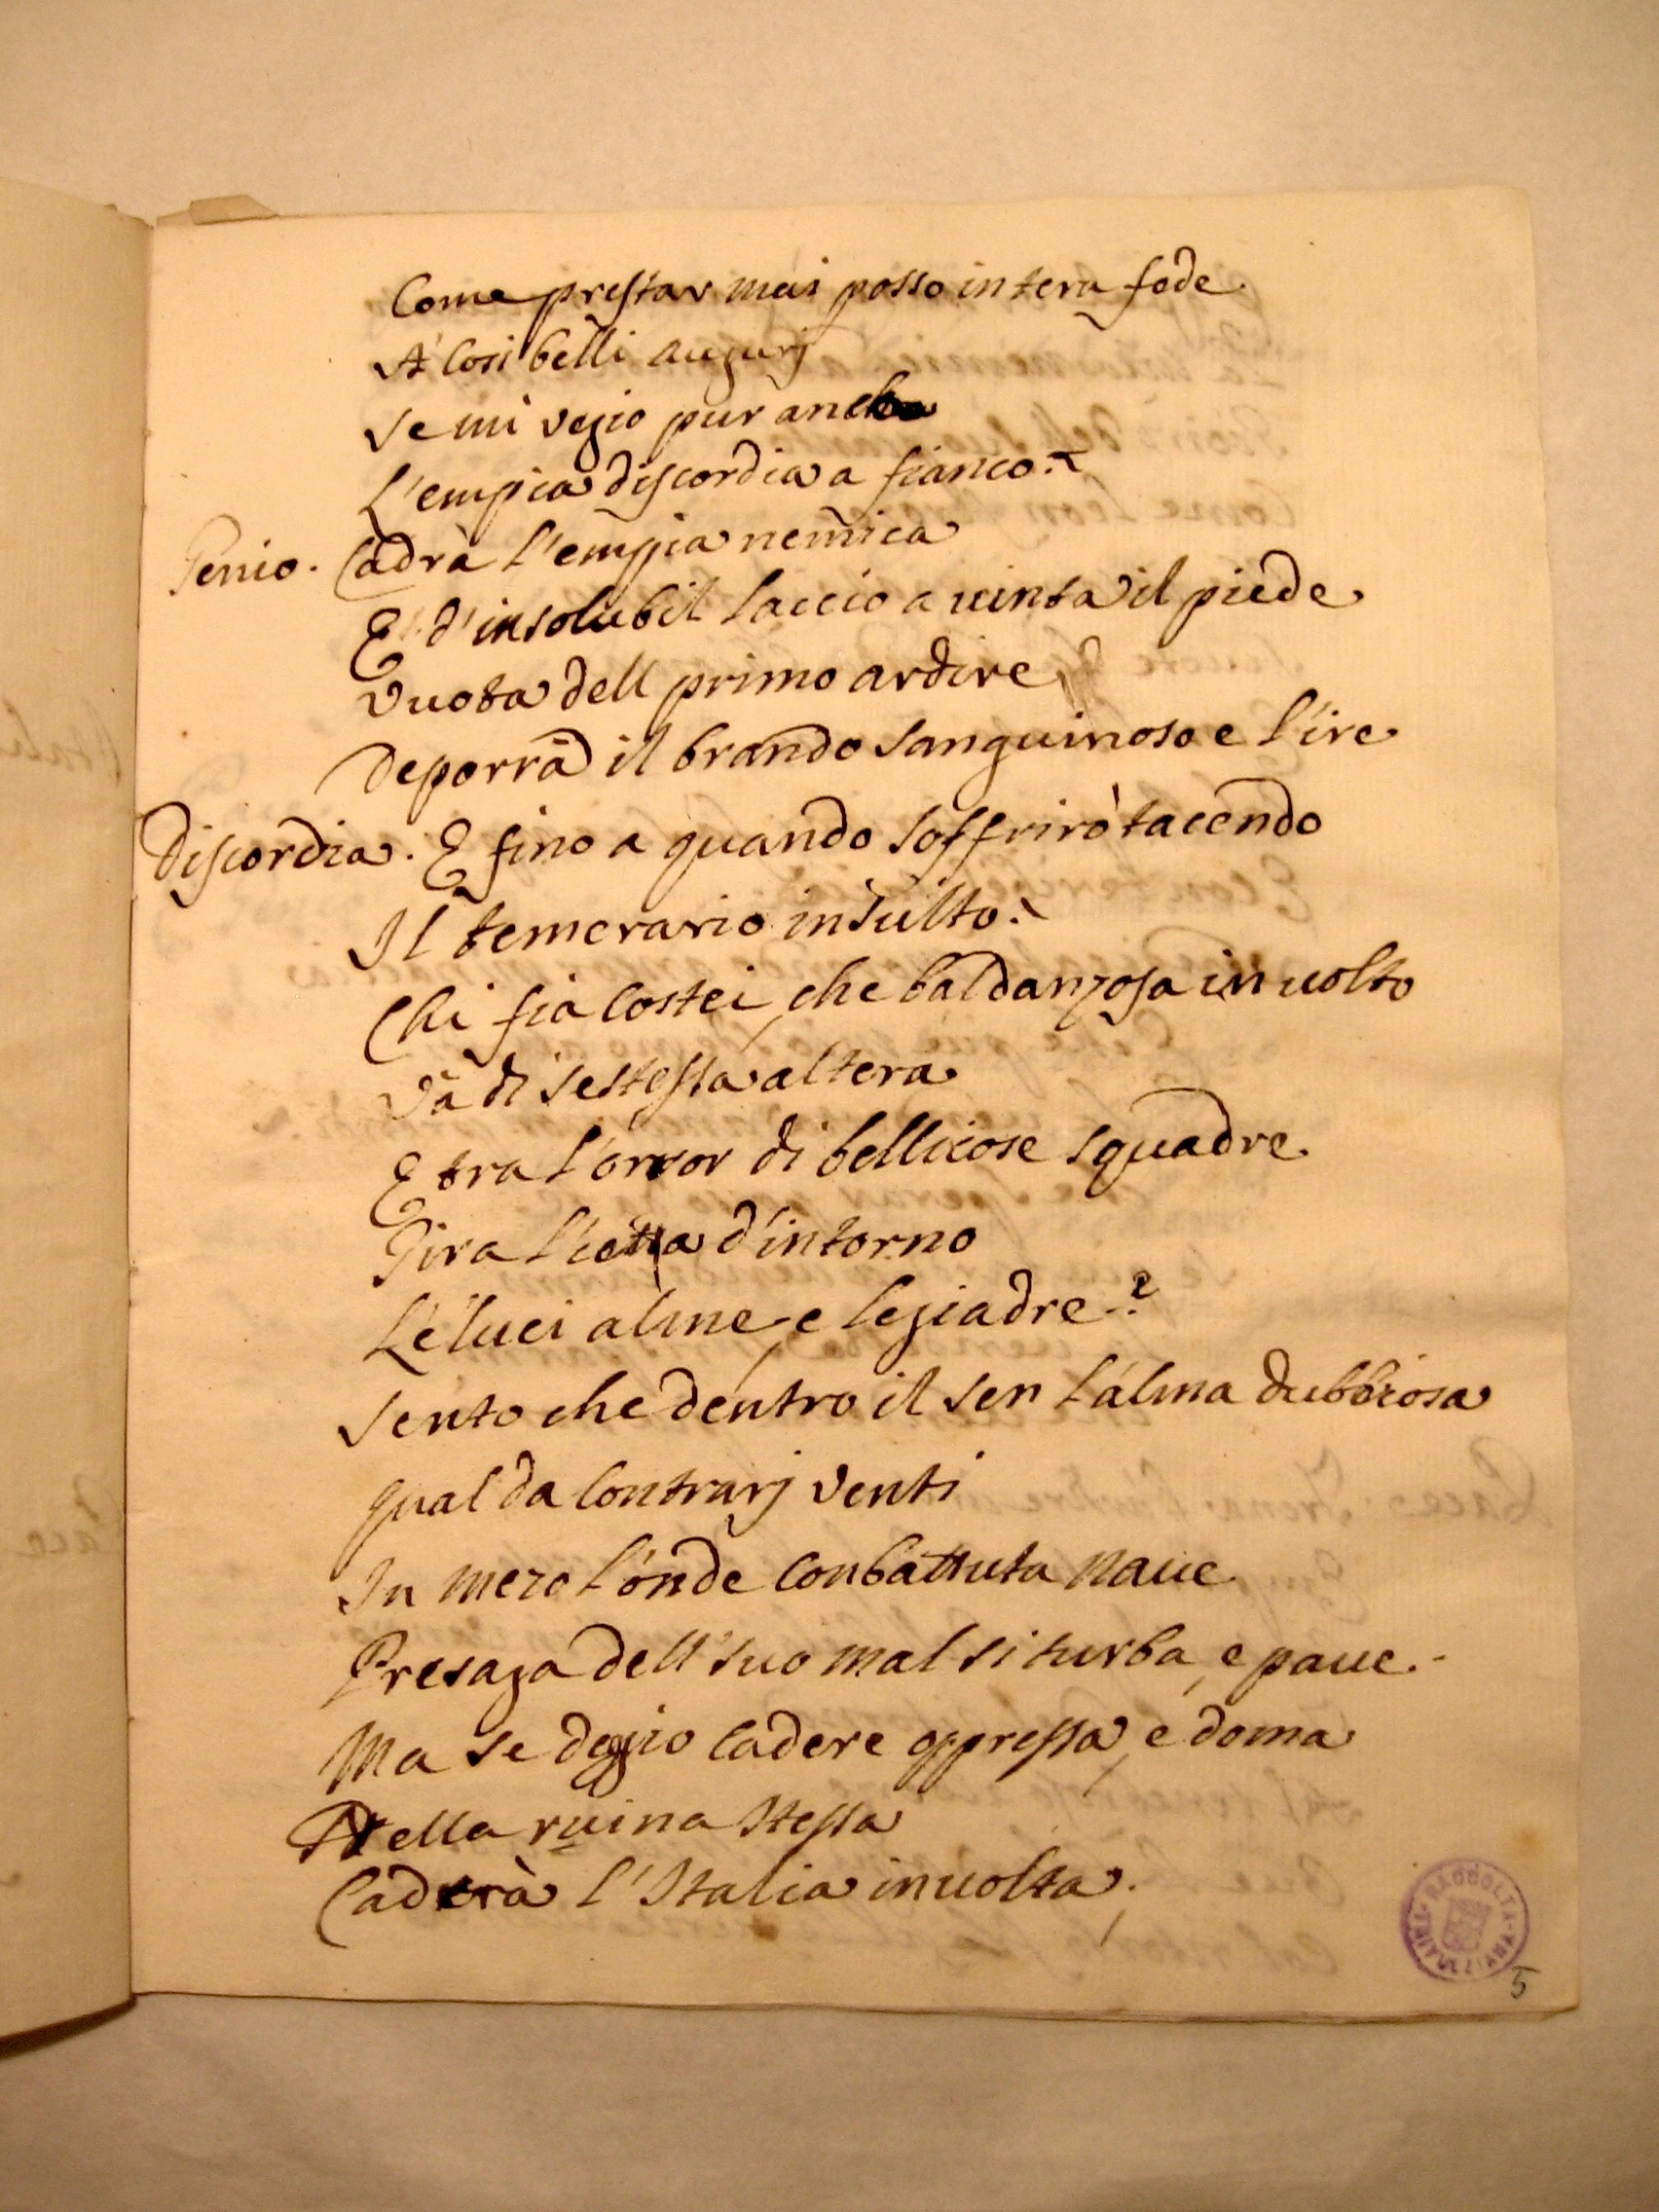 Come prestar mai posso intera fede
A' Cosi belli augurj
Se mi vegio pur anche
L'empia discordia a fianco?
Genio. Cadrà l'empia nemica
E d'insolubil laccio avinta il piede
Vuota dell primo ardire
Deporrà il brando sanguinoso e l'ire
Discordia. E fino a quando soffrirò tacendo
Il temerario insulto?
Chi fia costei, che baldanzosa in uolto
Và di sestessa altera
E tra l'orror di bellicose squadre
Gira lietta d'intorno
Le luci alme, e legiadre?
Sento che dentro il sen l'alma dubbiosa
qual da Contrarj venti
In mezo l'onde Conbattuta naue
Presaga dell suo mal si turba, e paue.
Ma se deggio cadere oppressa, e doma
Nella ruina stessa
Caderà l'Italia inuolta.
RACCOLTA
5